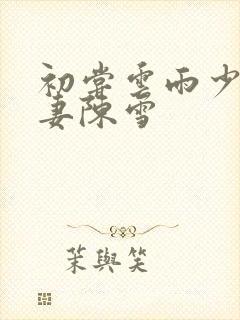 初嘗雲雨少
妻陳雪
茉與笑